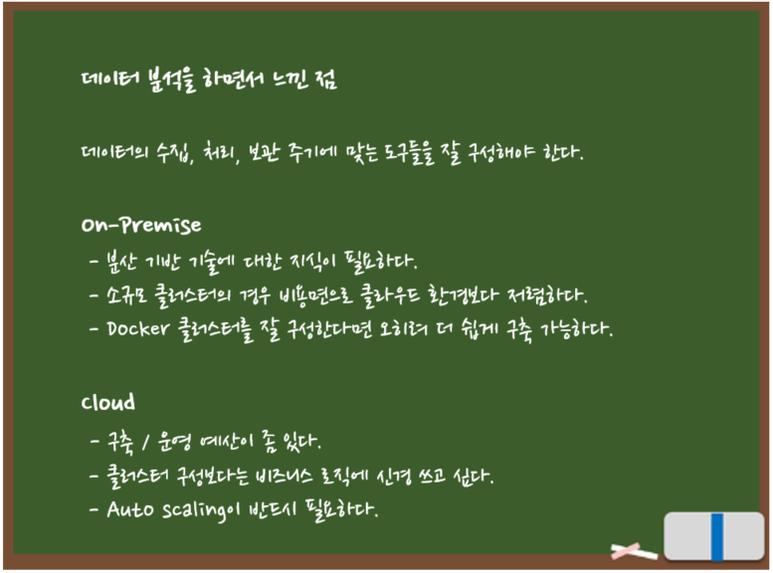 데이터 분석을 하면서 느낀 점
데이터의 수집, 처리, 보관 주기에 맞는 도구들을 잘 구성해야 한다.
On-Premise
- 분산 기반 기술에 대한 지식이 필요하다.
- 소규모 클러스터의 경우 비용면으로 클라우드 환경보다 저렴하다.
- Docker 클러스터를 잘 구성한다면 오히려 더 쉽게 구축 가능하다.
Cloud
- 구축 / 운영 예산이 좀 있다.
- 클러스터 구성보다는 비즈니스 로직에 신경 쓰고 싶다.
- Auto scaling이 반드시 필요하다.